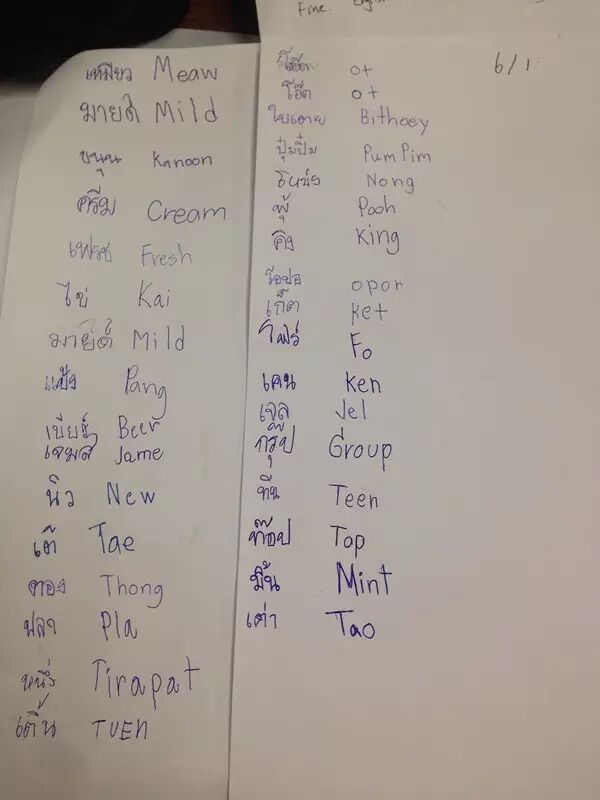 เหมียว Meaw
มายด์ Mild
ขนุน Kanoon
ครีม Cream
เฟรช Fresh
ไข่ Kai
มายด์ Mild
แป้ง Pang
เบียร์ Beer
เจมส์ Jame
นิว New
เต้ Tae
ตอง Thong
ปลา Pla
หนึ่ง Tirapat
เติ้น TUEn
Fine.
6/1
โอ๊ต ot
โอ๊ต ot
ใบเตย Bithoey
ปุ๋มปิ๋ม PumPim
Nong
พู้ Pooh
คิง King
โอปอ opor
เก็ต Ket
โฟร์ Fo
เคน Ken
เจล Jel
กรุ๊ป Group
ทีน Teen
ท๊อป Top
มิ้น Mint
เต่า Tao